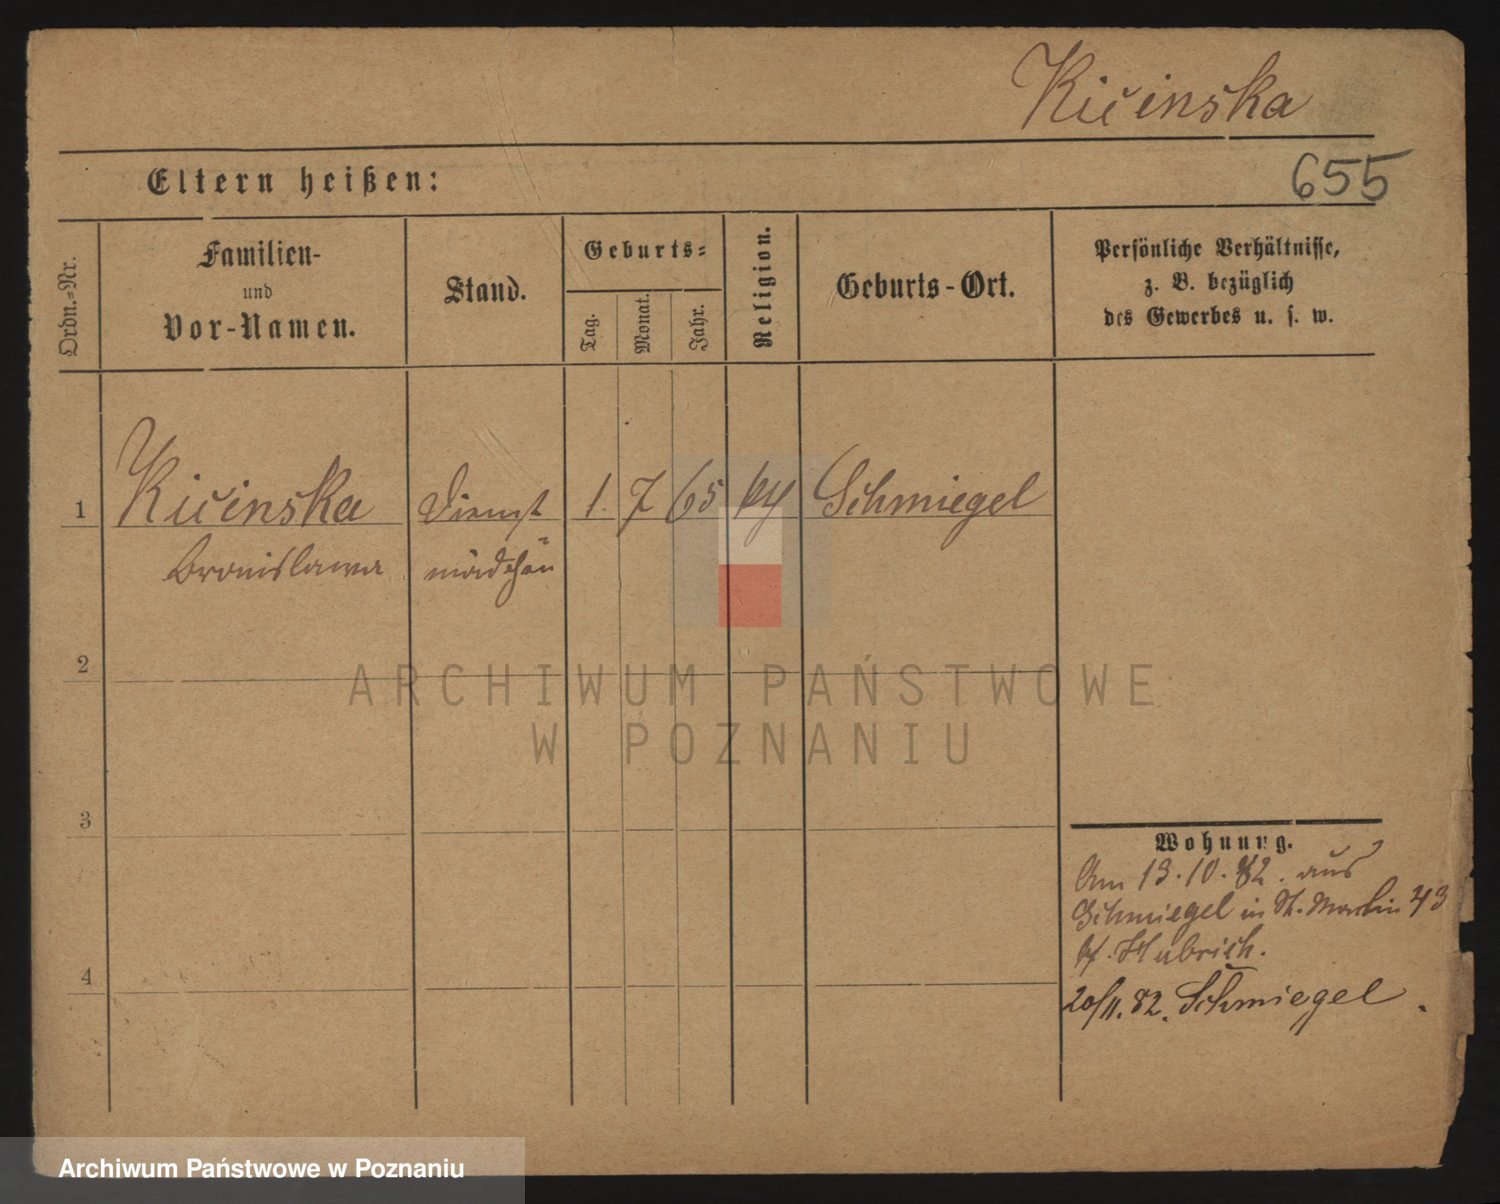 Kicinska
655
Eltern heißen:
Ordn.=Nr.
Familien-
und
Vor-Namen.
Stand.
Geburts=
Tag.
Monat.
Jahr.
Religion.
Geburts-Ort.
Persönliche Verhältnisse,
z. B. bezüglich
des Gewerbes u. s. w.
1 Kicinska Dienst 1. 7 65 kth Schmiegel
Bronislawa mädchen
2
3
4
Wohnung.
Am 13.10.82. aus
Schmiegel in St. Martin 43
bei Hubrich.
20/11.82. Schmiegel.
ARCHIWUM PAŃSTWOWE
W POZNANIU
Archiwum Państwowe w Poznaniu